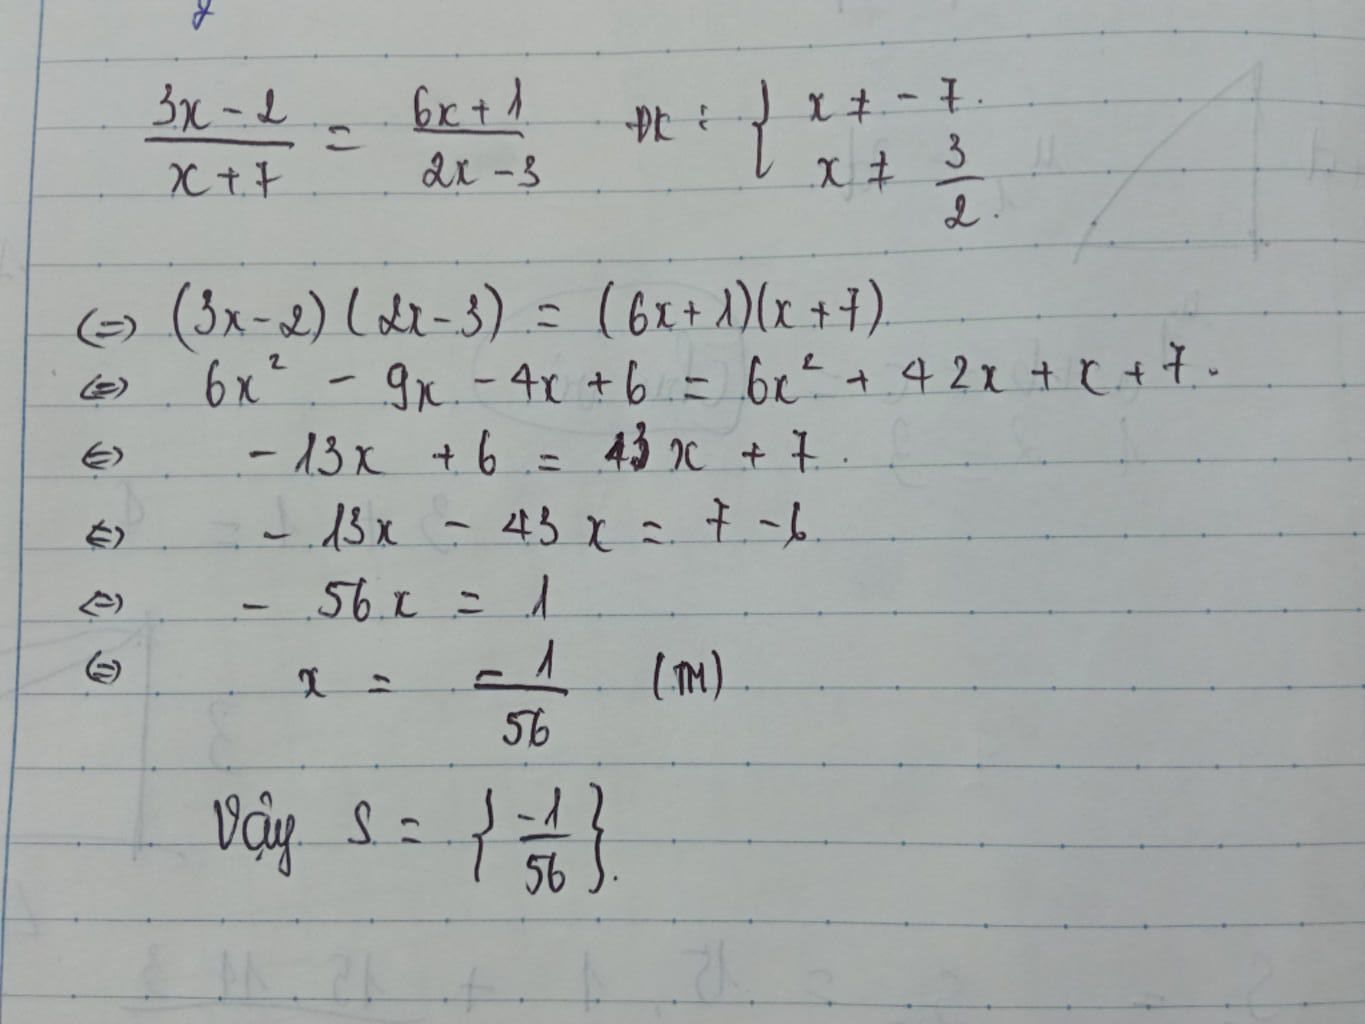 (3x - 2)/(x + 7) = (6x + 1)/(2x - 3) ĐK : { x ≠ - 7. x ≠ 3/2.
(=) (3x - 2) (2x - 3) = (6x + 1)(x + 7)
(=) 6x² - 9x - 4x + 6 = 6x² + 42x + x + 7.
(=) - 13x + 6 = 43x + 7.
(=) - 13x - 43x = 7 - 6
(=) - 56x = 1
(=) x = -1/56 (TM)
Vậy S = { -1/56 }.